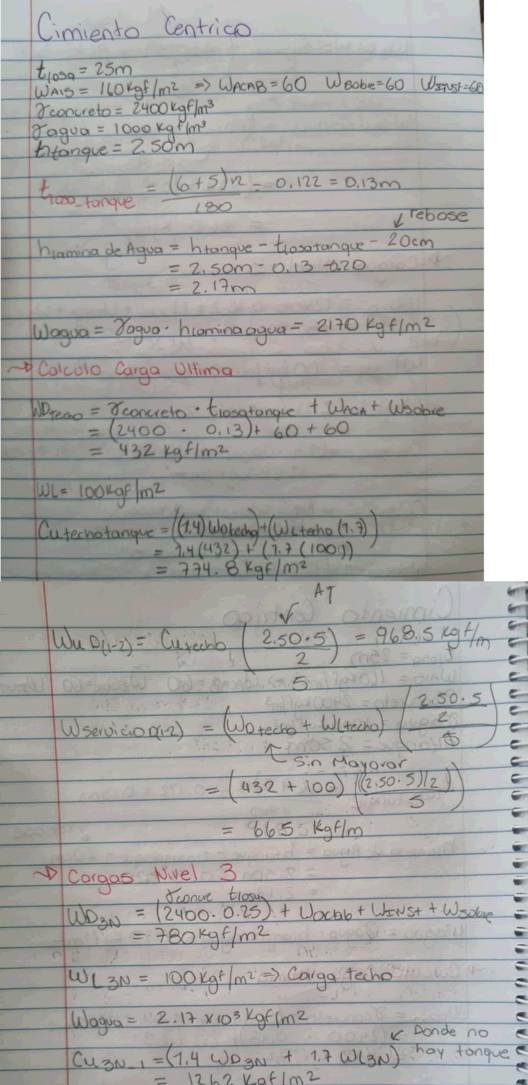 Cimiento Centrico
tlosa = 25m
WAIS = 160 kgf/m² => WACAB = 60 Wsobe = 60 WINST = 60
γconcreto = 2400 kgf/m³
γagua = 1000 kgf/m³
htanque = 2.50m
tloso_tanque = (6+5)·2 / 180 = 0.122 = 0.13m
rebose
hlamina de Agua = htanque - tlosatanque - 20cm
= 2.50m - 0.13 - 0.20
= 2.17m
Wagua = γagua · hlaminaagua = 2170 kgf/m²
→ Calculo Carga Ultima
WDtecho = γconcreto · tlosatanque + WACA + Wsobre
= (2400 · 0.13) + 60 + 60
= 432 kgf/m²
WL = 100 kgf/m²
CUtechotanque = ((1.4) WDtecho) + (WLtecho (1.7))
= 1.4(432) + (1.7(100))
= 774.8 kgf/m²
AT
WuD(1-2) = Cutecho ((2.50·5 / 2) / 5) = 968.5 kgf/m
WservicioD(1-2) = (WDtecho + WLtecho) ((2.50·5 / 2) / 5)
Sin Mayorar
= (432 + 100) ((2.50·5)/2 / 5)
= 665 kgf/m
→ Cargas Nivel 3
γconc tlosa
WD3N = (2400 · 0.25) + Wacab + WINSt + Wsobre
= 780 kgf/m²
WL3N = 100 kgf/m² => Carga techo
Wagua = 2.17 x10³ kgf/m²
Donde no
hay tanque
Cu3N-1 = (1.4 WD3N + 1.7 WL3N)
= 1262 kgf/m²